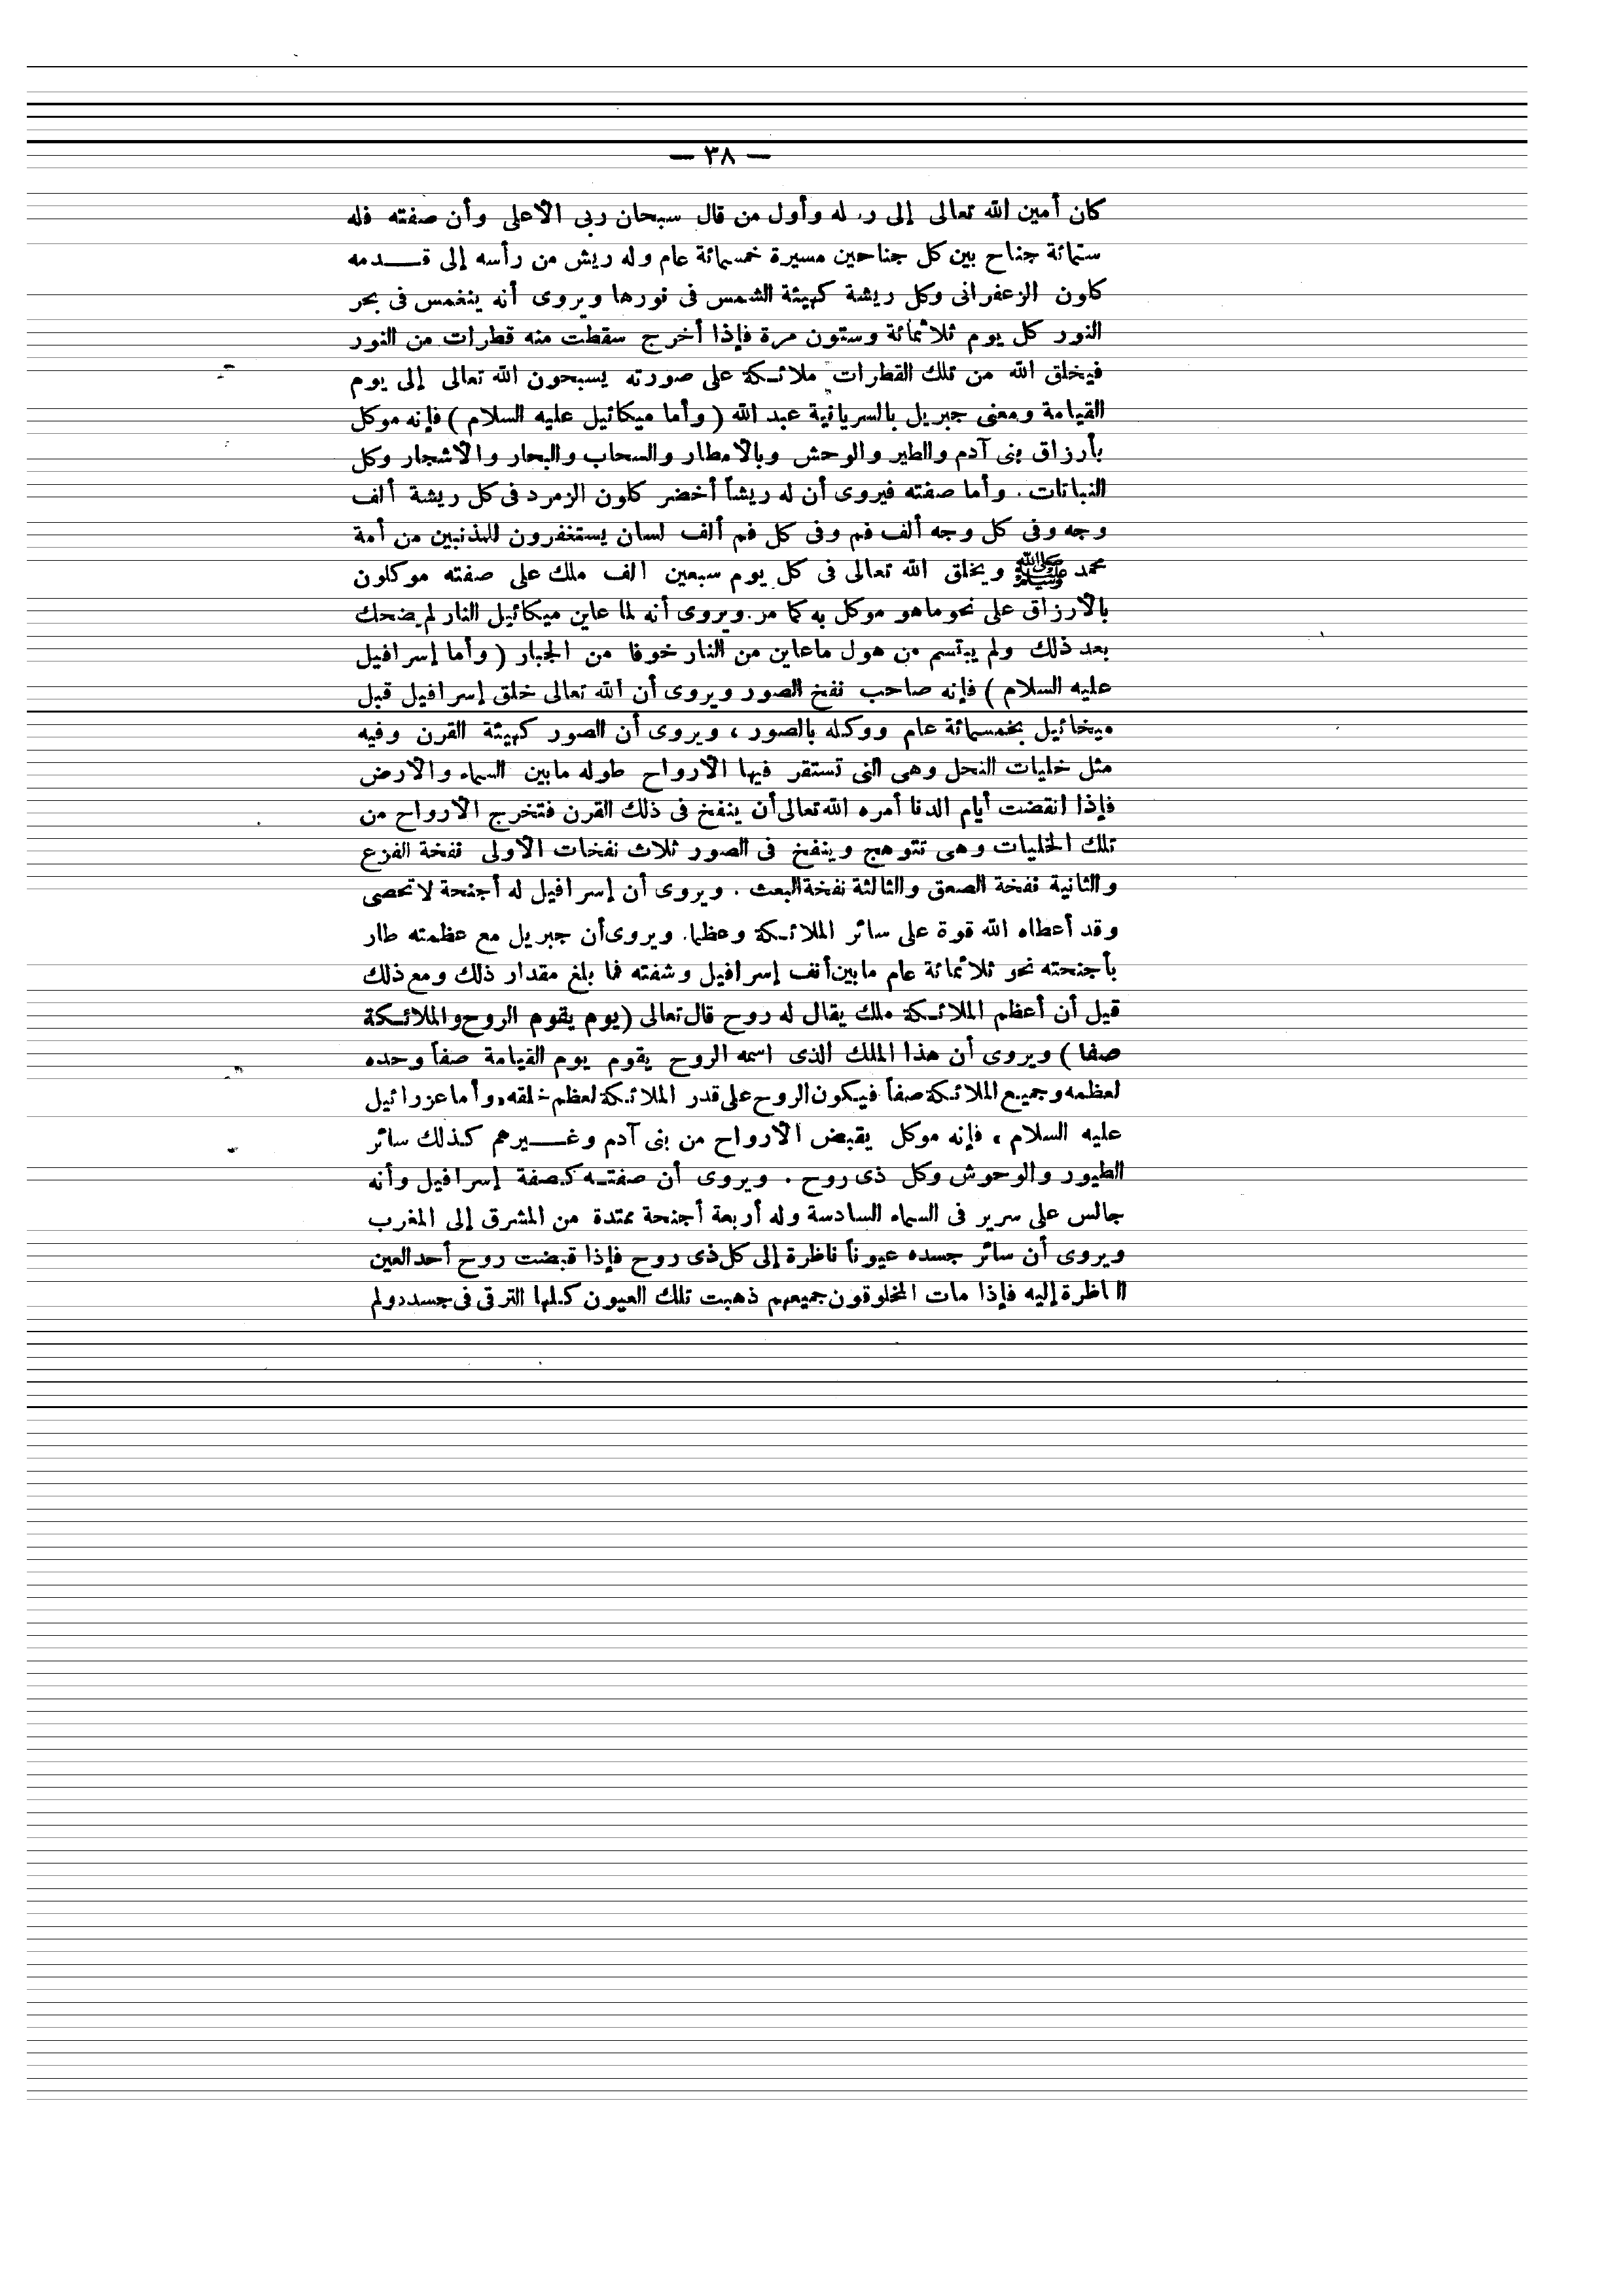 — ٣٨ —
كان أمين الله تعالى إلى ر له وأول من قال سبحان ربى الاعلى وأن صفته فله
ستمائة جناح بين كل جناحين مسيرة خمسمائة عام وله ريش من رأسه إلى قدمه
كلون الزعفرانى وكل ريشة كهيئة الشمس فى نورها ويروى أنه ينغمس فى بحر
النور كل يوم ثلاثمائة وستون مرة فإذا أخرج سقطت منه قطرات من النور
فيخلق الله من تلك القطرات ملائكة على صورته يسبحون الله تعالى إلى يوم
القيامة ومعنى جبريل بالسريانية عبد الله ( وأما ميكائيل عليه السلام ) فإنه موكل
بأرزاق بنى آدم والطير والوحش وبالامطار والسحاب والبحار والاشجار وكل
النباتات . وأما صفته فيروى أن له ريشاً أخضر كلون الزمرد فى كل ريشة ألف
وجه وفى كل وجه ألف فم وفى كل فم ألف لسان يستغفرون للمذنبين من أمة
محمد ﷺ ويخلق الله تعالى فى كل يوم سبعين الف ملك على صفته موكلون
بالارزاق على نحو ماهو موكل به كما مر. ويروى أنه لما عاين ميكائيل النار لم يضحك
بعد ذلك ولم يبتسم من هول ماعاين من النار خوفا من الجبار ( وأما إسرافيل
عليه السلام ) فإنه صاحب نفخ الصور ويروى أن الله تعالى خلق إسرافيل قبل
ميخائيل بخمسمائة عام ووكله بالصور ، ويروى أن الصور كهيئة القرن وفيه
مثل خليات النحل وهى التى تستقر فيها الارواح طوله مابين السماء والارض
فإذا انقضت أيام الدنا أمره الله تعالى أن ينفخ فى ذلك القرن فتخرج الارواح من
تلك الخليات وهى تتوهج وينفخ فى الصور ثلاث نفخات الاولى نفخة الفزع
والثانية نفخة الصعق والثالثة نفخة البعث . ويروى أن إسرافيل له أجنحة لا تحصى
وقد أعطاه الله قوة على سائر الملائكة وعظما. ويروى أن جبريل مع عظمته طار
بأجنحته نحو ثلاثمائة عام مابين أنف إسرافيل وشفته فما بلغ مقدار ذلك ومع ذلك
قيل أن أعظم الملائكة ملك يقال له روح قال تعالى (يوم يقوم الروح والملائكة
صفا ) ويروى أن هذا الملك الذى اسمه الروح يقوم يوم القيامة صفاً وحده
لعظمه وجميع الملائكة صفاً فيكون الروح على قدر الملائكة لعظم خلقه، وأما عزرائيل
عليه السلام ، فإنه موكل يقبض الارواح من بنى آدم وغيرهم كذلك سائر
الطيور والوحوش وكل ذى روح . ويروى أن صفته كصفة إسرافيل وأنه
جالس على سرير فى السماء السادسة وله أربعة أجنحة ممتدة من المشرق إلى المغرب
ويروى أن سائر جسده عيوناً ناظرة إلى كل ذى روح فإذا قبضت روح أحد العين
الناظرة إليه فإذا مات المخلوقون جميعهم ذهبت تلك العيون كلها التى فى جسده ولم